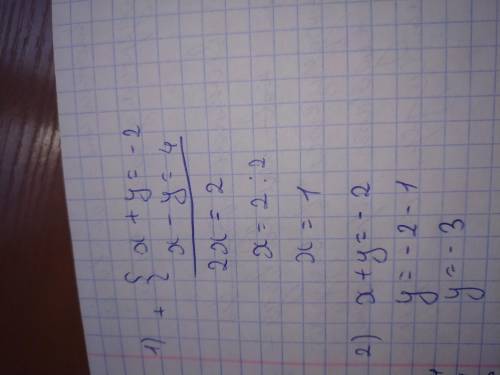 1) + { x + y = -2
x - y = 4
2x = 2
x = 2 : 2
x = 1
2) x + y = -2
y = -2 - 1
y = -3